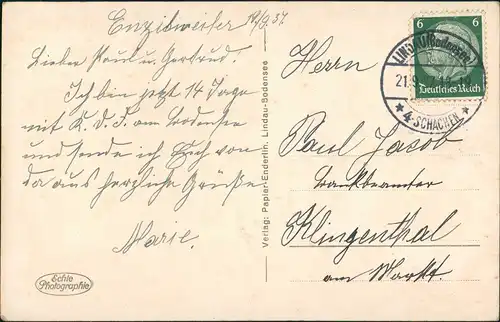 Enzisweiler 19/9. 37.
Lieber Paul u. Gertrud.
Ich bin jetzt 14 Tage
mit K. d. F. am Bodensee
und sende ich Euch von
da aus herzliche Grüße.
Marie.
Echte
Photographie
Verlag: Papier-Enderlin, Lindau-Bodensee
Herrn
Paul Jacob
Bankbeamter
Klingenthal
am Markt.
6 6
Deutsches Reich
LINDAU (Bodensee)
21.9.
* 4-SCHACHEN *